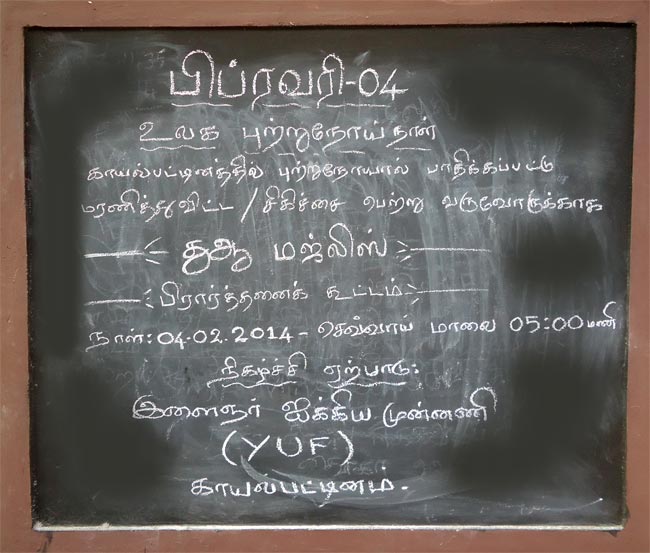 பிப்ரவரி-04
உலக புற்றுநோய் நாள்
காயல்பட்டினத்தில் புற்றுநோயால் பாதிக்கப்பட்டு
மரணித்து விட்ட / சிகிச்சை பெற்று வருவோருக்காக
துஆ மஜ்லிஸ்
பிரார்த்தனைக் கூட்டம்
நாள்: 04-02.2014 - செவ்வாய் மாலை 05:00 மணி
நிகழ்ச்சி ஏற்பாடு:
இளைஞர் ஐக்கிய முன்னணி
(YUF)
காயல்பட்டினம்.